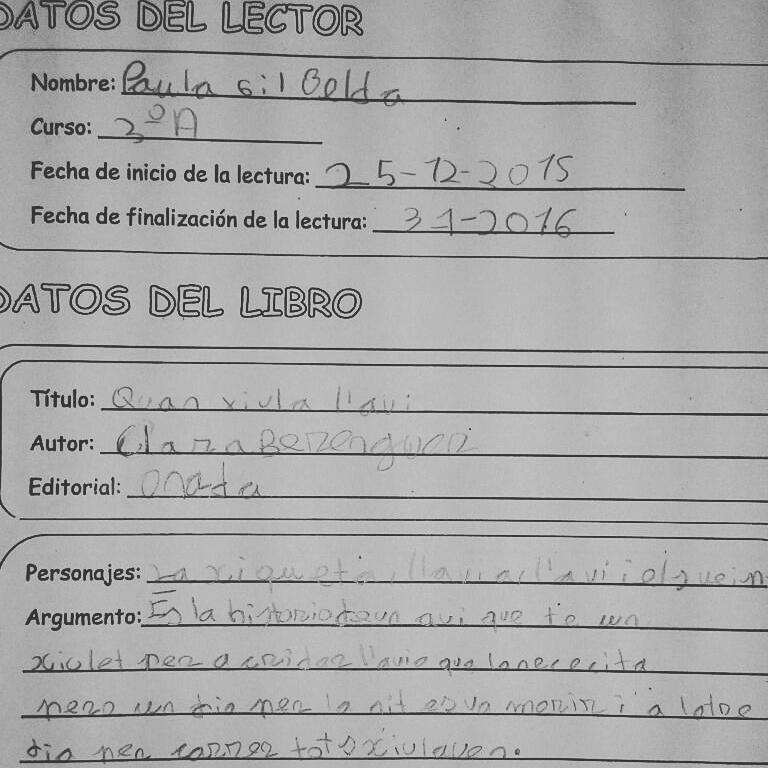 DATOS DEL LECTOR
Nombre: Paula Gil Belda
Curso: 3º A
Fecha de inicio de la lectura: 25-12-2015
Fecha de finalización de la lectura: 31-2016
DATOS DEL LIBRO
Título: Quan xiula l'avi
Autor: Clara Berenguer
Editorial: Onada
Personajes: La xiqueta, l'avi i els vein
Argumento: Es la historia de un avi que te un
xiulet per a cridar l'avia que la necesita
pero un dia per la nit es va morir i a l'altre
dia per carrer tots xiulaven.